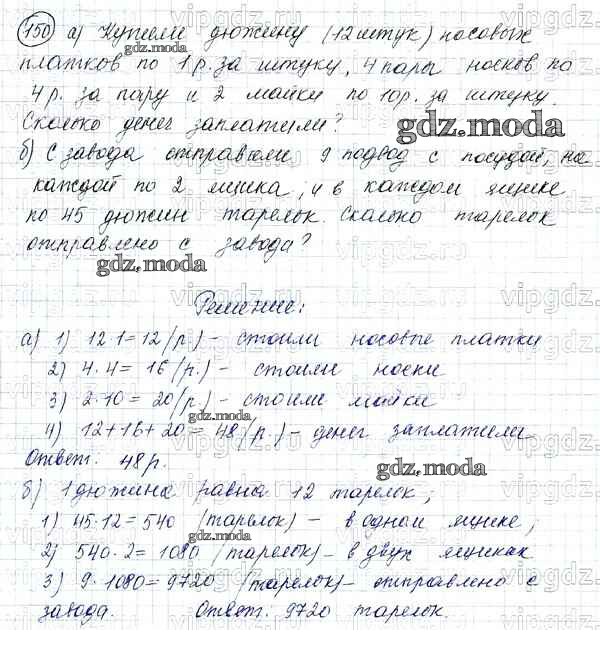 150 а) Купили дюжину (12 штук) носовых
платков по 1 р. за штуку, 4 пары носков по
4 р. за пару и 2 майки по 10 р. за штуку.
Сколько денег заплатили?
gdz.moda
б) С завода отправили 9 подвод с посудой, на
каждой по 2 ящика, и в каждом ящике
по 45 дюжин тарелок. Сколько тарелок
отправлено с завода?
gdz.moda
Решение:
а) 1) 12·1=12 (р.) - стоили носовые платки
2) 4·4= 16 (р.) - стоили носки
3) 2·10=20 (р.) - стоили майки
gdz.moda
4) 12+16+20=48 (р.) - денег заплатили
Ответ: 48 р.
gdz.moda
б) 1 дюжина равна 12 тарелок;
1) 45·12=540 (тарелок) - в одном ящике;
gdz.moda
2) 540·2=1080 (тарелок) - в двух ящиках
3) 9·1080=9720 (тарелок) - отправлено с
завода. Ответ: 9720 тарелок.